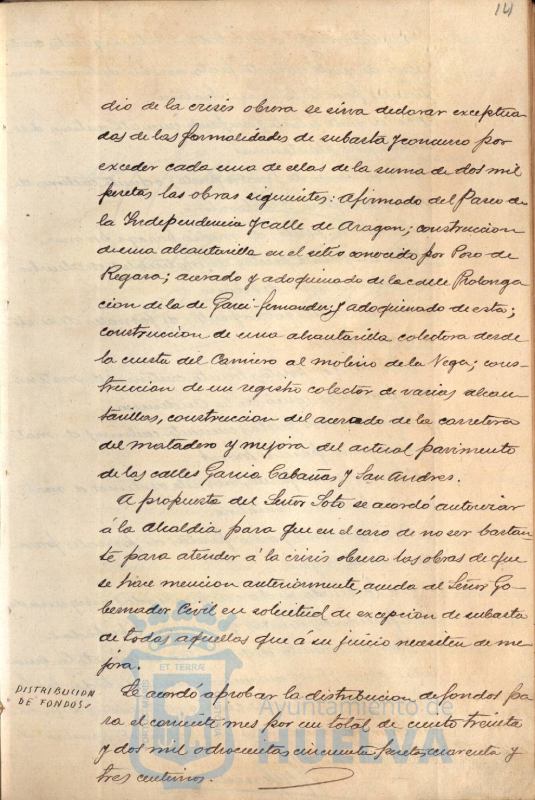 14
dio de la crisis obrera se sirva declarar exceptua
das de las formalidades de subasta y concurso por
exceder cada una de ellas de la suma de dos mil
pesetas las obras siguientes: afirmado del Paseo de
la Independencia y calle de Aragon; construccion
de una alcantarilla en el sitio conocido por Poso de
Regara; acerado y adoquinado de la calle Prolonga
cion de la de Garci-fernandez; y adoquinado de esta;
construccion de una alcantarilla colectora desde
la cuesta del Carnicero al molino de la Vega; cons-
truccion de un registro colector de varias alcan
tarillas, construccion del acerado de la carretera
del matadero y mejora del actual pavimento
de las calles Garcia Cabañas y San Andres.
A propuesta del Señor Soto se acordó autorizar
á la Alcaldia para que en el caso de no ser bastan
te para atender á la crisis obrera las obras de que
se hace mencion anteriormente, acuda al Señor Go
bernador Civil en solicitud de excepcion de subasta
de todas aquellas que á su juicio necesiten de me
jora.
DISTRIBUCION
DE FONDOS
Se acordó aprobar la distribucion de fondos pa
ra el corriente mes por un total de ciento treinta
y dos mil ochocientas cincuenta pesetas, cuarenta y
tres centimos.
Ayuntamiento de
HUELVA
ET TERRÆ